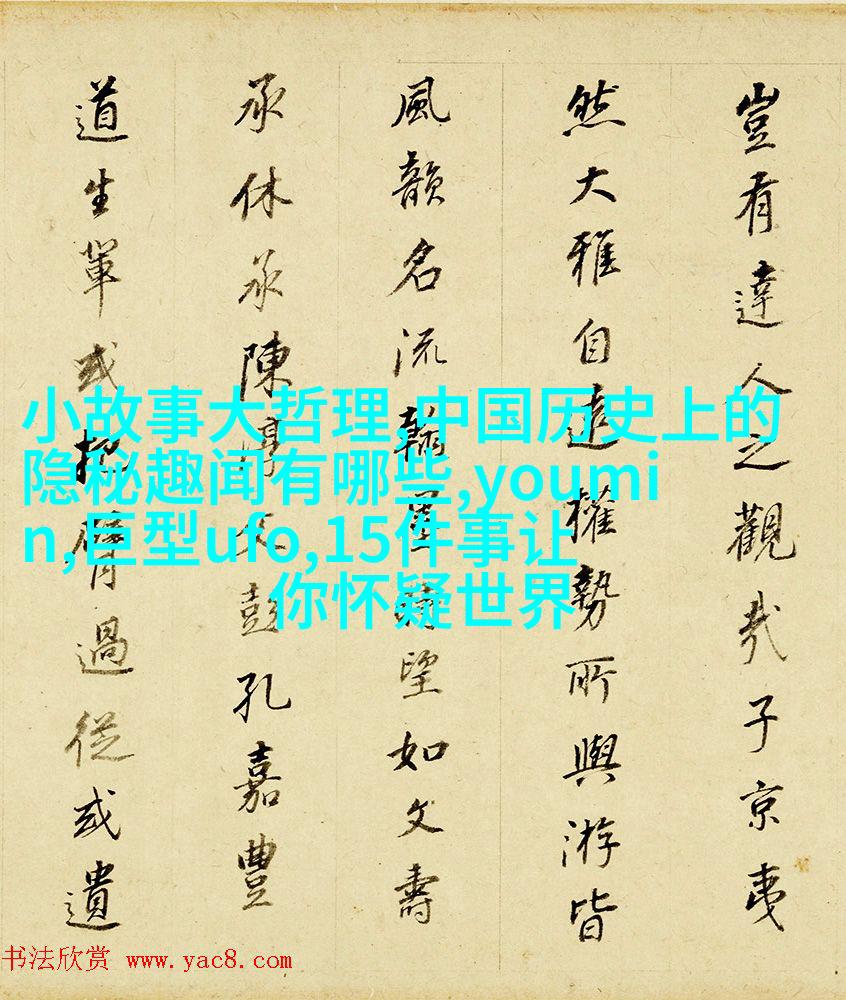 豈有達人之觀哉子京夷
然大雅自遠權勢所與游皆
風韻名流翰墨望如文壽
承休承陳淳父彭孔嘉豐
道生軰或把臂過從或遺
小故事大哲理,中国历史上的
隐秘趣闻有哪些,youmi
n,巨型ufo,15件事让
你怀疑世界
书法欣赏 www.yac8.com